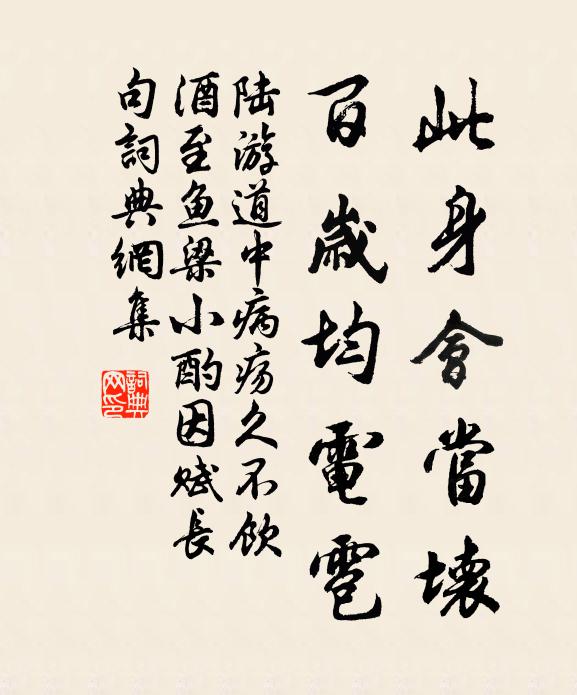 此身會當壞
百歲均電雹
陆游道中病疡久不饮
酒至鱼梁小酌因赋長
句詞典網集
詞典
网印